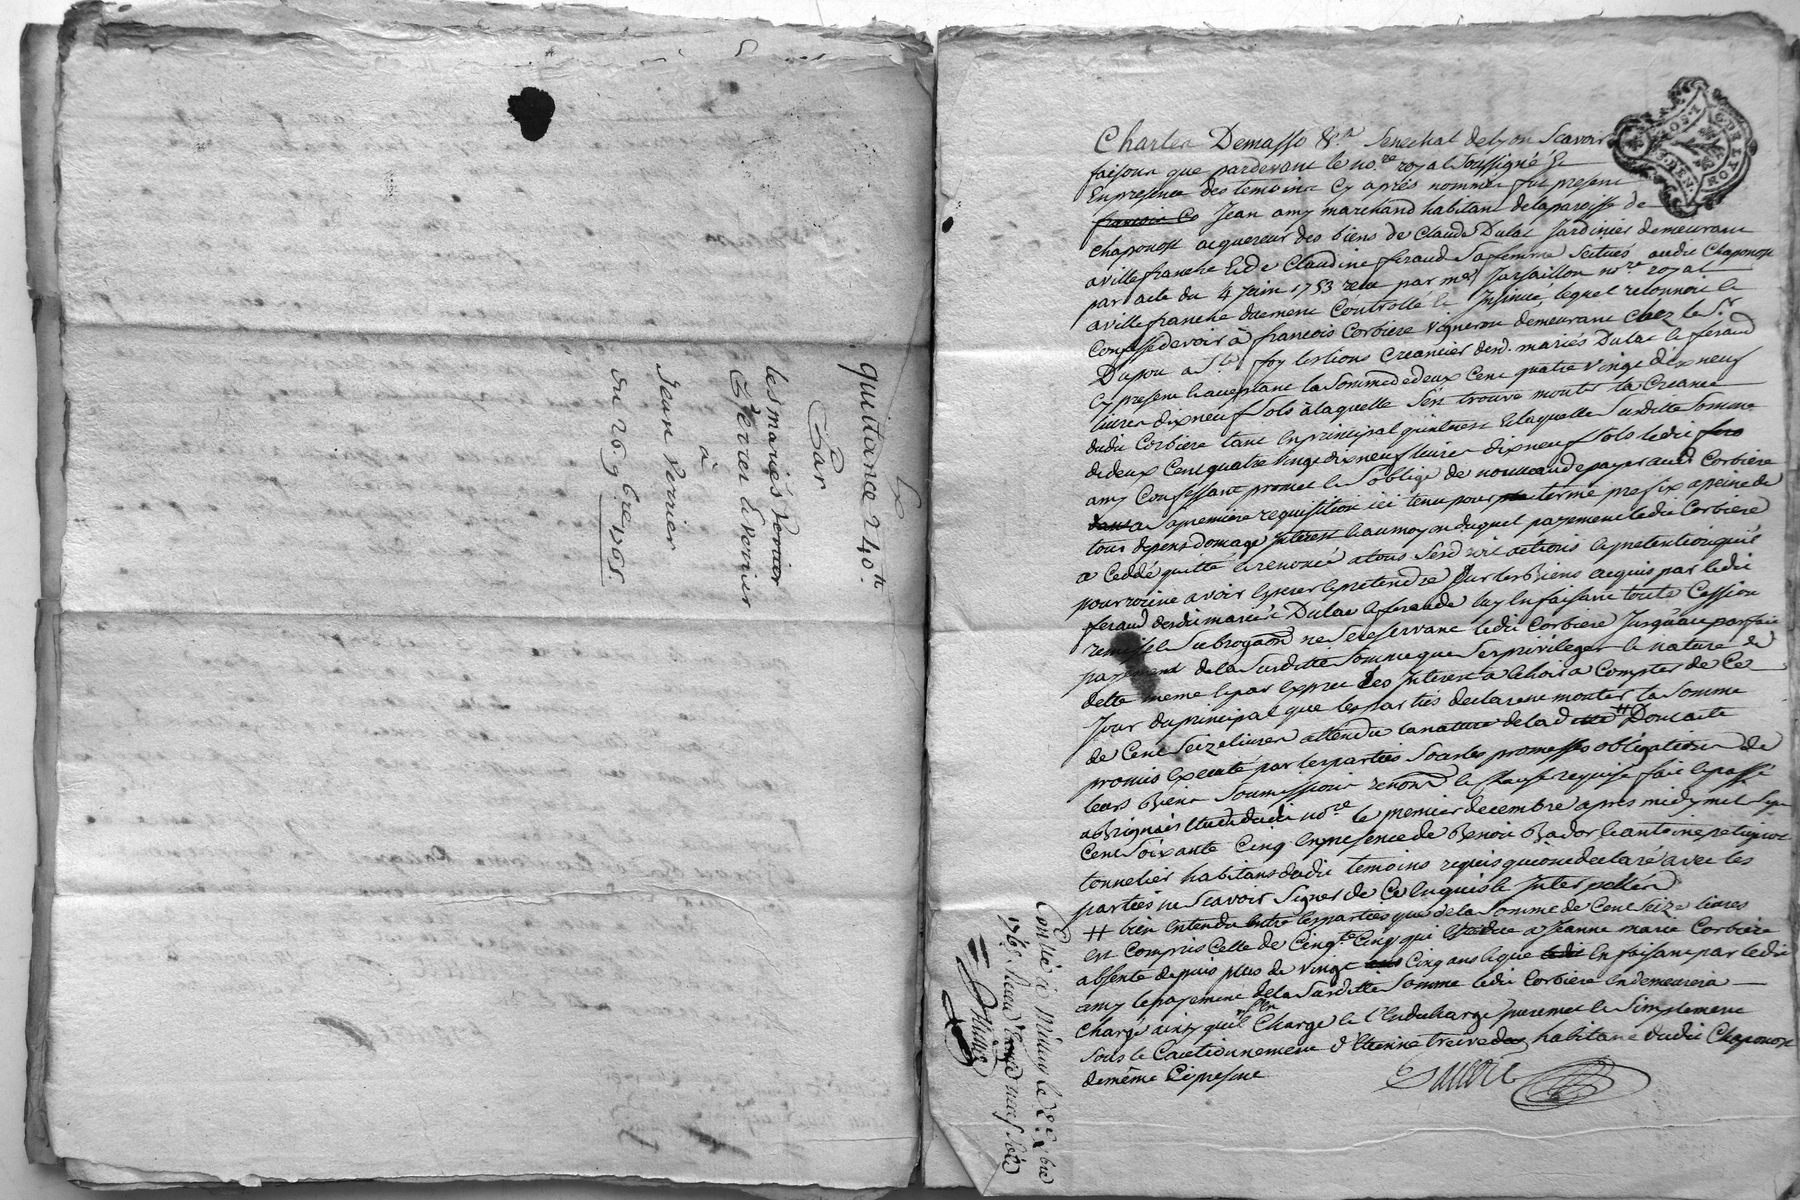 Le
quittance 240ᵗᵗ
Par
les mariés Verrier
à
Jean Verrier
du 26 9bre 1765
Charles Demasso &ª Senechal de lyon Scavoir
faisons que pardevant le noʳᵉ royal soussigné Et
En presence des temoins Cy aprés nommés fut present
Jean amy marchand habitant de la paroisse de
chaponost acquereur des biens de Claude Dulac Jardinier demeurant
a villefranche Et de Claudine feraud Sa femme Scitués audit Chaponost
par acte du 4 Juin 1753 recu par mᵉ noʳᵉ royal
a villefranche duement Controllé et Insinué, lequel reconnoit et
Confesse devoir à françois Corbiere vigneron demeurant chez le Sʳ
Dupou a Sᵗᵉ foy les lions Creancier desd. mariés Dulac et feraud
Cy present et aceptant la Somme de deux Cent quatre vingt dix neuf
livres dix neuf Sols à laquelle s'est trouvé monté la Creance
dudit Corbiere tant En principal qu'interest Et laquelle Susditte Somme
de deux Cent quatre vingt dix neuf livres dix neuf Sols ledit
amy Confessant promet et S'oblige de nouveau de payer audit Corbiere
a Sa premiere requisition ici tenu pour terme prefix a peine de
tous depens domage Interest et au moyen duquel payement ledit Corbiere
a Ceddé quitté et renoncé a tous Ses droit actions et pretention qu'il
pourroit avoir Exercer et pretendre Sur les Biens acquis par ledit
feraud desdit mariés Dulac et feraud luy En faisant toute Cession
remise et Subrogaôn ne Se reservant ledit Corbiere Jusqu'au parfait
payement de la Susditte Somme que Ses privileges et nature de
dette meme et par exprec Les Interest a Echoir a Compter de Ce
Jour du principal que les parties declarent monter la Somme
de Cent Seize livres attendu la nature de la ditte # Dont acte
promis Execute par les parties Sous les promesses obligations de
leurs Biens Soumissions renonᵒⁿ et Clause requise fait et passé
a Brignais Etude dudit noʳᵉ le premier decembre aprés midy mil Sept
Cent Soixante Cinq En presence de Benoit Bador et antoine
tonnelier habitans dudit temoins requis qui ont declaré avec les
parties ne Scavoir Signer de Ce Enquis et Interpellés
# bien Entendu Entre les parties que de la Somme de Cent Seize livres
est Compris Celle de Cinqᵗᵉ Cinq qui Est due a Jeanne marie Corbiere
absente depuis plus de vingt Cinq ans et que En faisant par ledit
amy le payement de la Susditte Somme ledit Corbiere En demeurera
Chargé ainsy qu'il S'En Charge et l'En decharge purement et Simplement
Sous le Cautionnement d'Etienne habitant dudit Chaponost
de même Cy present
Conllé à Millery le 8 Xbre
1765. Recu neuf sols